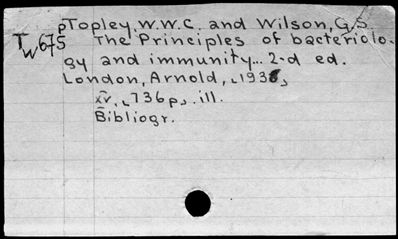 pTopley, W.W.C. and Wilson, G.S.
Tw675 The Principles of bacteriolo-
gy and immunity... 2-d ed.
London, Arnold, 1936,
xv, 736 p. ill.
Bibliogr.